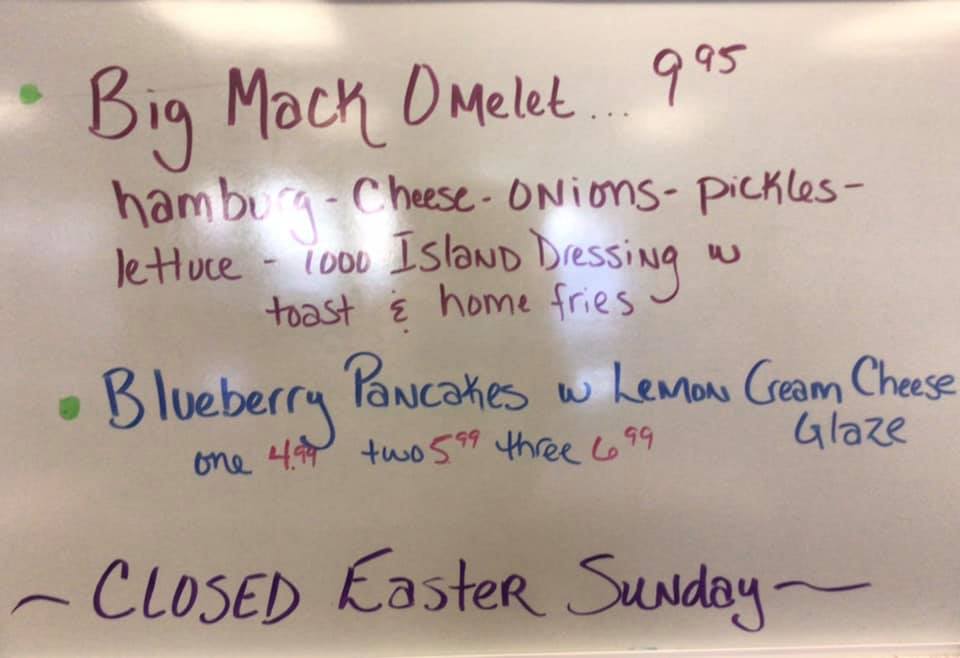 Big Mack Omelet... 9 95
hamburg - Cheese - ONIONS - PICKLES -
lettuce - 1000 ISLAND DRESSING w
toast & home fries
Blueberry Pancakes w Lemon Cream Cheese
Glaze
one 4.99 two 5 99 three 6 99
~ CLOSED Easter Sunday ~